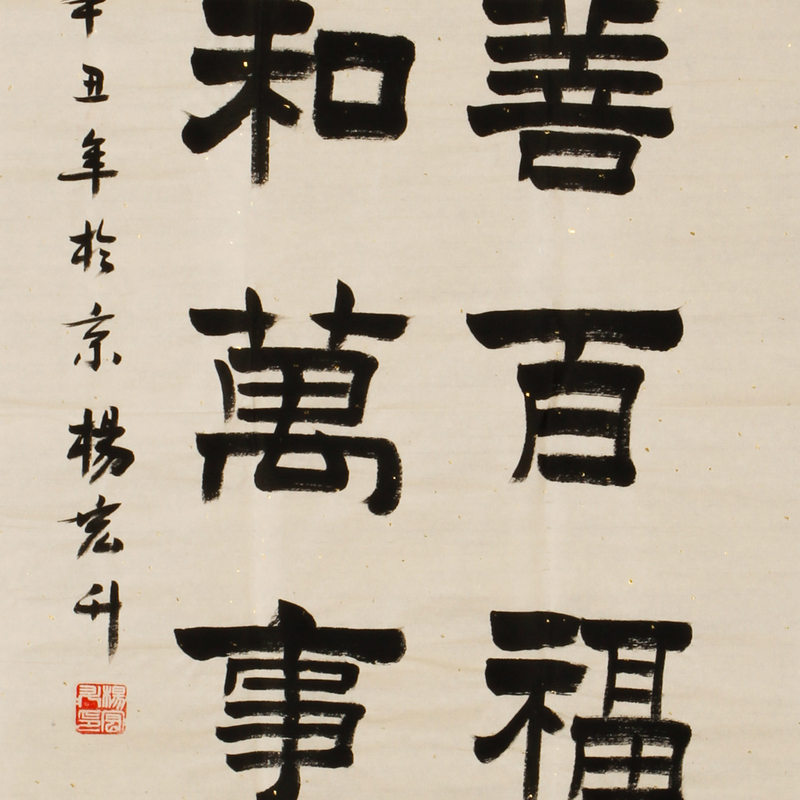 善百福
和萬事
辛丑年於京楊宏升